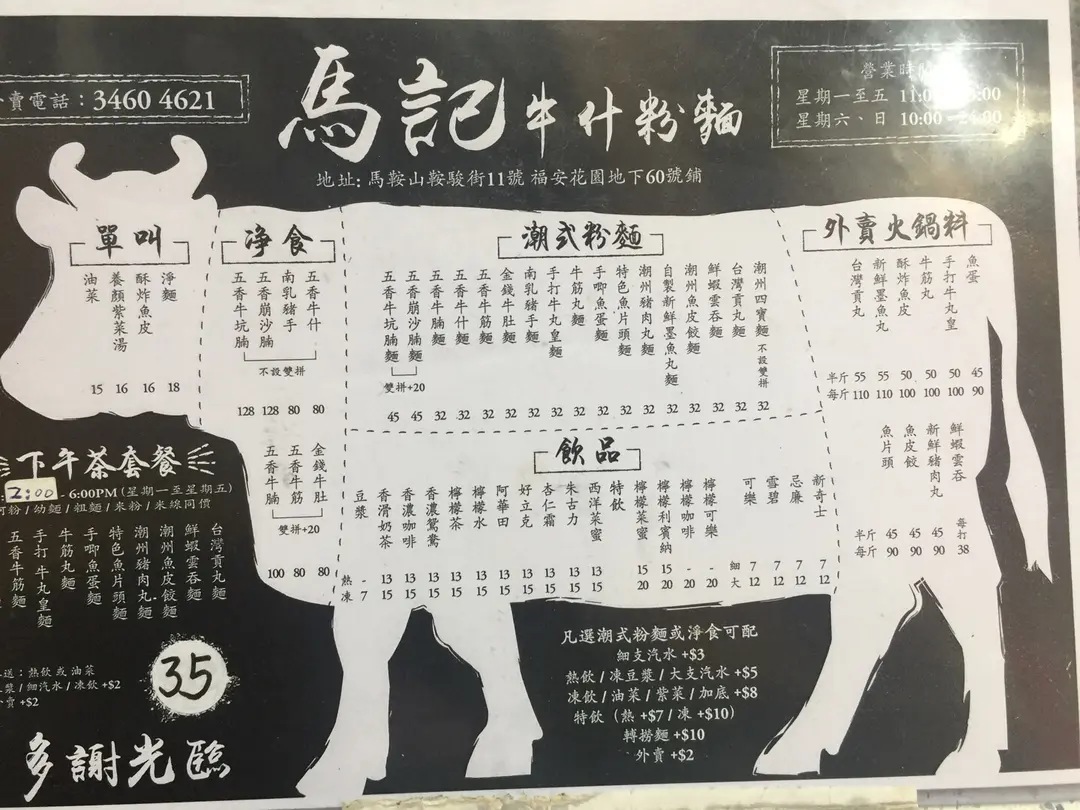 賣電話：3460 4621
馬記牛什粉麵
營業時
星期一至五 11:0 :00
星期六、日 10:00 - 24:00
地址: 馬鞍山鞍駿街11號 福安花園地下60號鋪
單叫
油菜 15
養顏紫菜湯 16
酥炸魚皮 16
淨麵 18
净食
五香牛坑腩 128
五香崩沙腩 128
南乳豬手 80
五香牛什 80
不設雙拼
五香牛腩 100
五香牛筋 80
金錢牛肚 80
雙拼+20
潮式粉麵
五香牛坑腩麵 45
五香崩沙腩麵 45
雙拼+20
五香牛腩麵 32
五香牛什麵 32
五香牛筋麵 32
金錢牛肚麵 32
南乳豬手麵 32
手打牛丸皇麵 32
牛筋丸麵 32
手唧魚蛋麵 32
特色魚片頭麵 32
潮州豬肉丸麵 32
自製新鮮墨魚丸麵 32
潮州魚皮餃麵 32
鮮蝦雲吞麵 32
台灣貢丸麵 32
潮州四寶麵 不設雙拼 32
外賣火鍋料
台灣貢丸
新鮮墨魚丸
酥炸魚皮
牛筋丸
手打牛丸皇
魚蛋
半斤 55 55 50 50 50 45
每斤 110 110 100 100 100 90
魚片頭
魚皮餃
新鮮豬肉丸
鮮蝦雲吞
半斤 45 45 45
每斤 90 90 90
每打 38
飲品
豆漿
香滑奶茶
香濃咖啡
香濃鴛鴦
檸檬茶
檸檬水
阿華田
好立克
杏仁霜
朱古力
西洋菜蜜
特飲
檸檬菜蜜
檸檬利賓納
檸檬咖啡
檸檬可樂
可樂
雪碧
忌廉
新奇士
熱 - 13 13 13 13 13 13 13 13 13 13 15 15 - -
凍 7 15 15 15 15 15 15 15 15 15 15 20 20 20 20
細 7 7 7 7
大 12 12 12 12
下午茶套餐
2:00 - 6:00PM (星期一至星期五)
河粉 / 幼麵 / 粗麵 / 米粉 / 米線同價
五香牛筋麵
手打牛丸皇麵
牛筋丸麵
手唧魚蛋麵
特色魚片頭麵
潮州豬肉丸麵
潮州魚皮餃麵
鮮蝦雲吞麵
台灣貢丸麵
送：熱飲 或 油菜
漿 / 細汽水 / 凍飲 +$2
賣 +$2
35
多謝光臨
凡選潮式粉麵或淨食可配
細支汽水 +$3
熱飲 / 凍豆漿 / 大支汽水 +$5
凍飲 / 油菜 / 紫菜 / 加底 +$8
特飲（熱 +$7 / 凍 +$10）
轉撈麵 +$10
外賣 +$2